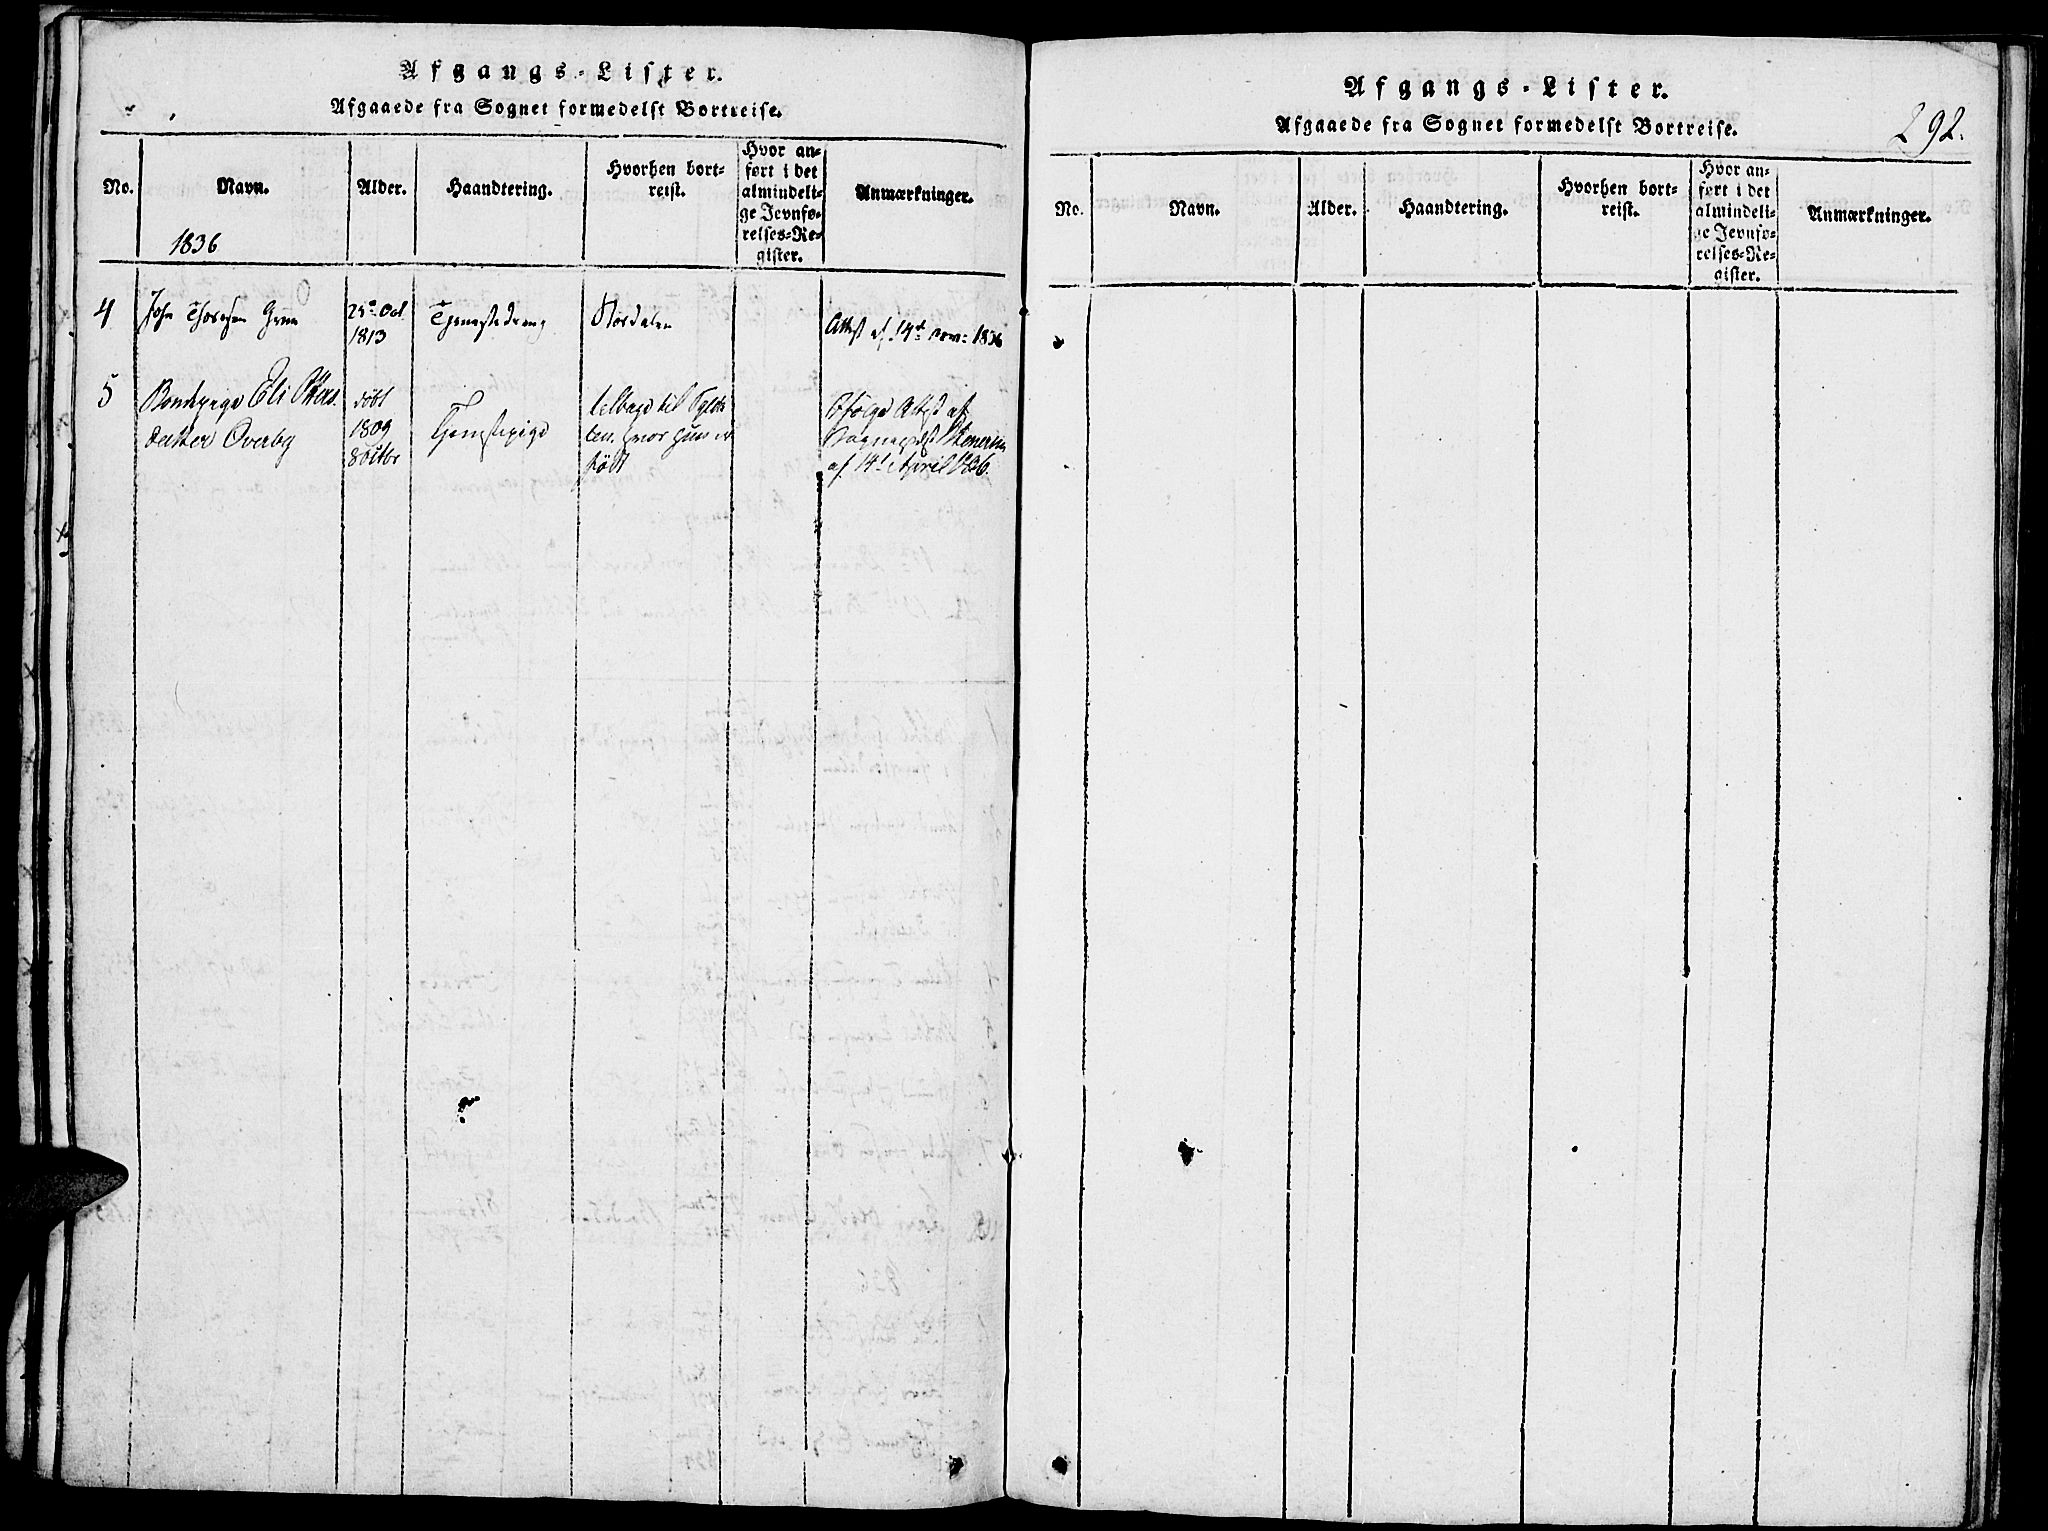 Afgangs-Lister.
Afgaaede fra Sognet formedelst Bortreise.
No.
Navn.
Alder.
Haandtering.
Hvorhen bort-
reist.
Hvor an-
ført i det
almindeli-
ge Jevnfø-
relses-Re-
gister.
Anmærkninger.
1836
4
John
25de Oct
1813
Tjenestedreng
Størdalen
Attest af 14de 1836
5
Bondepige Eli Peders
datter Overbÿ
døbt
1809
8 Octbr
Tjenestepige
tilbage til Tylda
len, hvor hun er
født
Ifølge Attest af
Sognepræst
af 14de April 1836.
Afgangs-Lister.
Afgaaede fra Sognet formedelst Bortreise.
292.
No.
Navn.
Alder.
Haandtering.
Hvorhen bort-
reist.
Hvor an-
ført i det
almindeli-
ge Jevnfø-
relses-Re-
gister.
Anmærkninger.